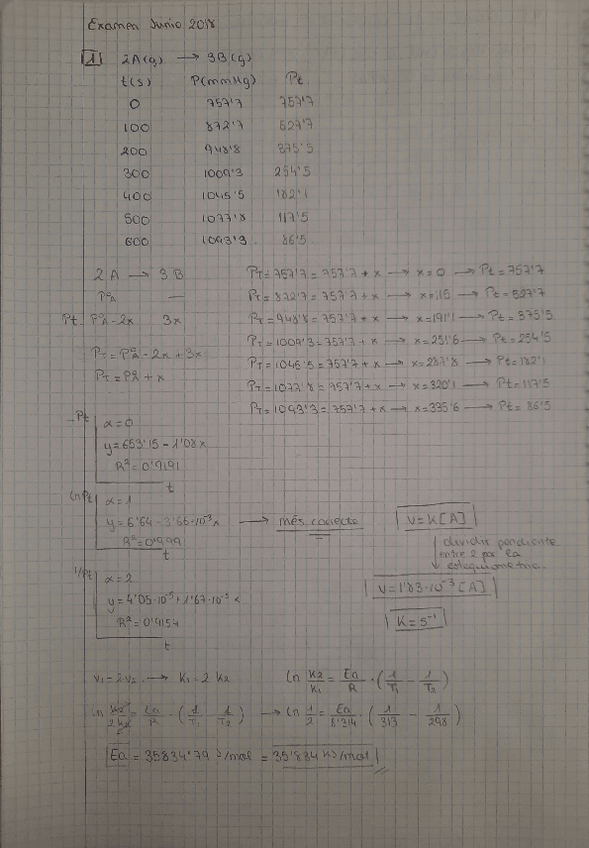 Examen Junio 2018
1 2A(g) → 3B(g)
t(s) P(mmHg) Pt
0 757'7 757'7
100 872'7 527'7
200 948'8 375'5
300 1009'3 254'5
400 1045'5 182'1
500 1077'8 117'5
600 1093'3 86'5
2A → 3B
P°A —
Pt P°A - 2x 3x
PT = P°A - 2x + 3x
PT = P°A + x
PT = 757'7 = 757'7 + x → x = 0 → Pt = 757'7
PT = 872'7 = 757'7 + x → x = 115 → Pt = 527'7
PT = 948'8 = 757'7 + x → x = 191'1 → Pt = 375'5
PT = 1009'3 = 757'7 + x → x = 251'6 → Pt = 254'5
PT = 1045'5 = 757'7 + x → x = 287'8 → Pt = 182'1
PT = 1077'8 = 757'7 + x → x = 320'1 → Pt = 117'5
PT = 1093'3 = 757'7 + x → x = 335'6 → Pt = 86'5
Pt α = 0
y = 653'15 - 1'08x
R² = 0'9191
t
ln Pt α = 1
y = 6'64 - 3'65·10⁻³x → més correcte
R² = 0'999
t
1/Pt α = 2
y = 4'05·10⁻⁵ + 1'67·10⁻⁵ x
R² = 0'9154
t
V = K[A]
dividir pendiente
entre 2 por la
estequiometria
V = 1'83·10⁻³ [A]
K = s⁻¹
v₁ = 2·v₂ → K₁ = 2 K₂
ln K₂/K₁ = Ea/R · (1/T₁ - 1/T₂)
ln K₂/2K₂ = Ea/R · (1/T₁ - 1/T₂) → ln 1/2 = Ea/8'314 · (1/313 - 1/298)
Ea = 35834'79 J/mol = 35'834 KJ/mol